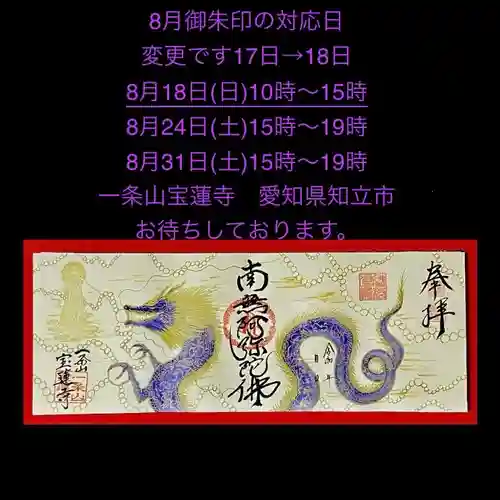 8月御朱印の対応日
変更です17日→18日
8月18日(日)10時〜15時
8月24日(土)15時〜19時
8月31日(土)15時〜19時
一条山宝蓮寺　愛知県知立市
お待ちしております。
奉拝
南無阿弥陀佛
令和 年
月 日
一条山
宝蓮寺